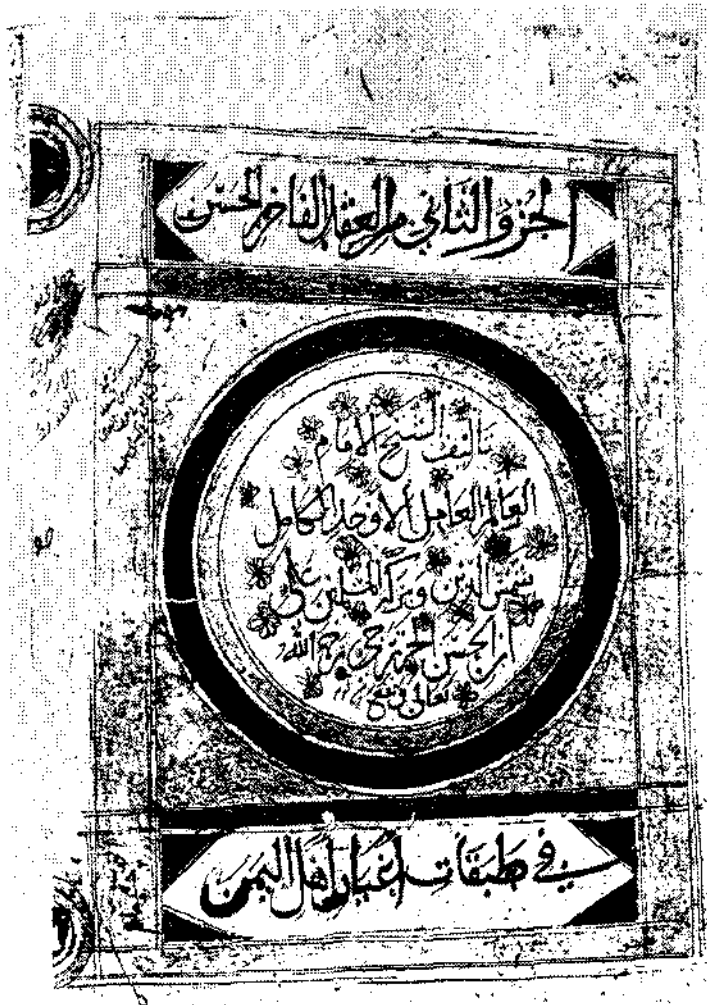 الجزو الثاني من العقد الفاخر الحسن
تاليف الشيخ الامام
العالم العامل الاوحد الكامل
شمس الدين وبركة المسلمين علي
ابن الحسن الخزرجي رحمه الله
تعالى ونفع به
في طبقات اعيان اهل اليمن